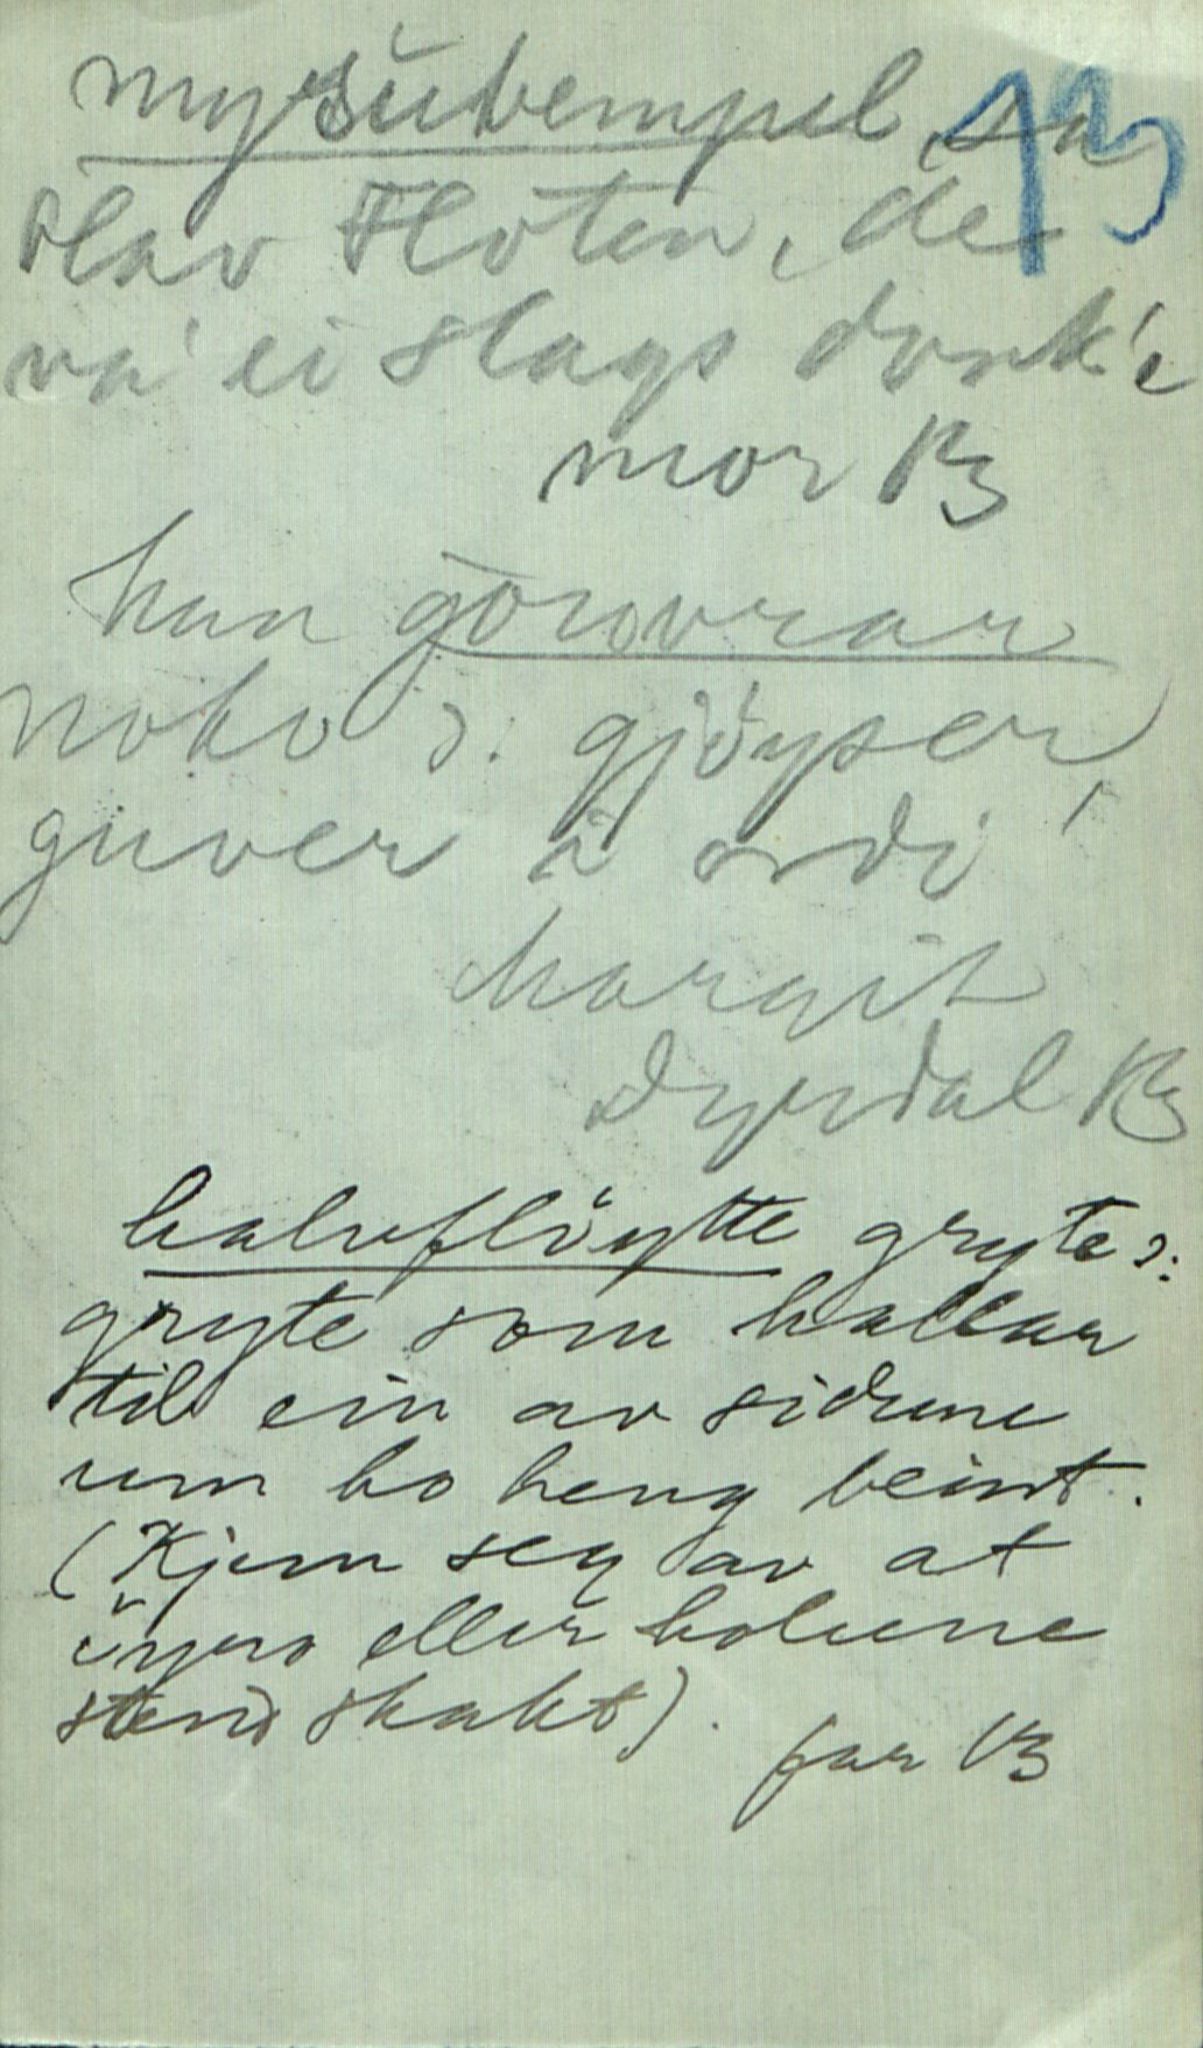 mysübempel sa
Olav Flöten, de
va' ei slags dork'e
mor B
han görovrar
noko ɔ: gjöyser,
guver i ordi
Margit
Dyrdal B
halvflöytte gryte ɔ:
gryte som hallar
til ein av sidune
um ho heng beint.
(Kjem seg av at
öyro eller holune
stend skakt).
far B